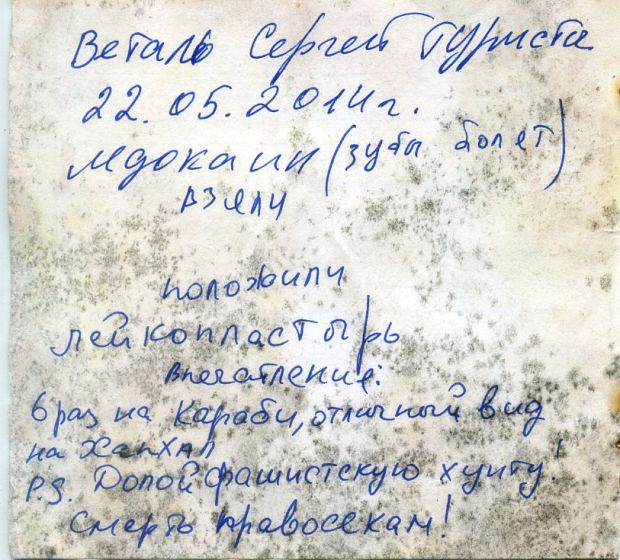 Веталь Сергей туристы
22.05.2014г.
лидокаин (зубы болят)
взяли
положили
лейкопластырь
Впечатление:
6 раз на Караби, отличный вид
на Хапхал
P.S. Долой фашистскую хунту!
Смерть правосекам!